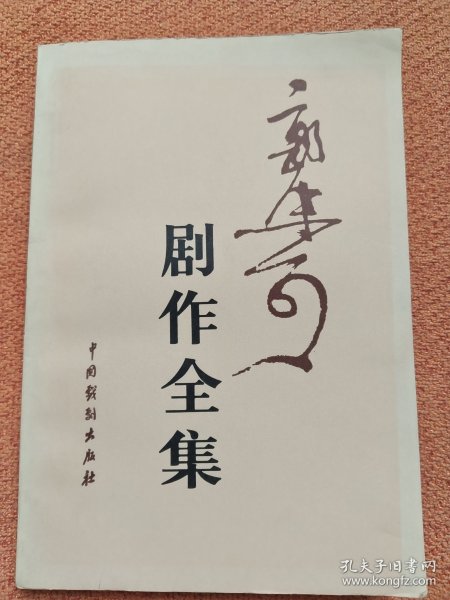 郭沫若
剧作全集
中国戏剧出版社
孔夫子旧书网
www.kongfz.com